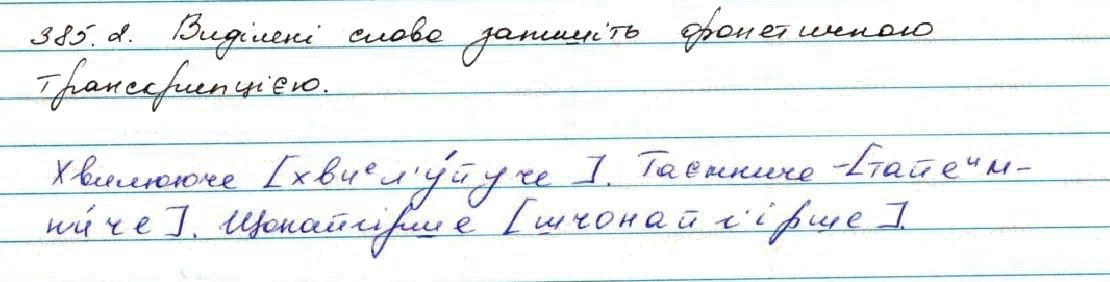 385. 2. Виділені слова запишіть фонетичною
транскрипцією.
Хвилююче [хвиᵉл'у́йуче]. Таємниче -[тайеᵎᵎм-
ни́че]. Щонайгірше [шчонайг'ірше].